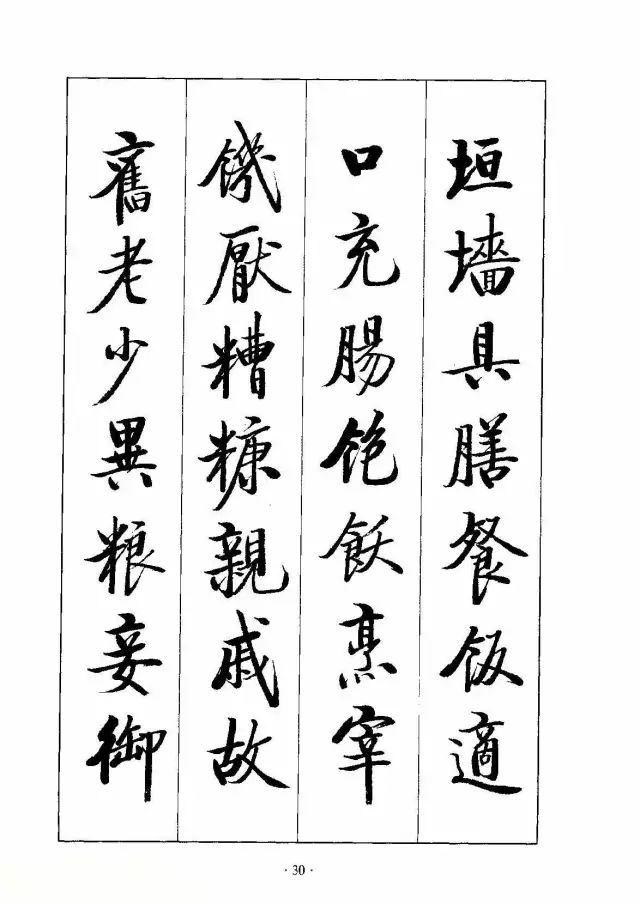 垣墻具膳餐飯適
口充腸飽飫烹宰
饑厭糟糠親戚故
舊老少異粮妾御
·30·